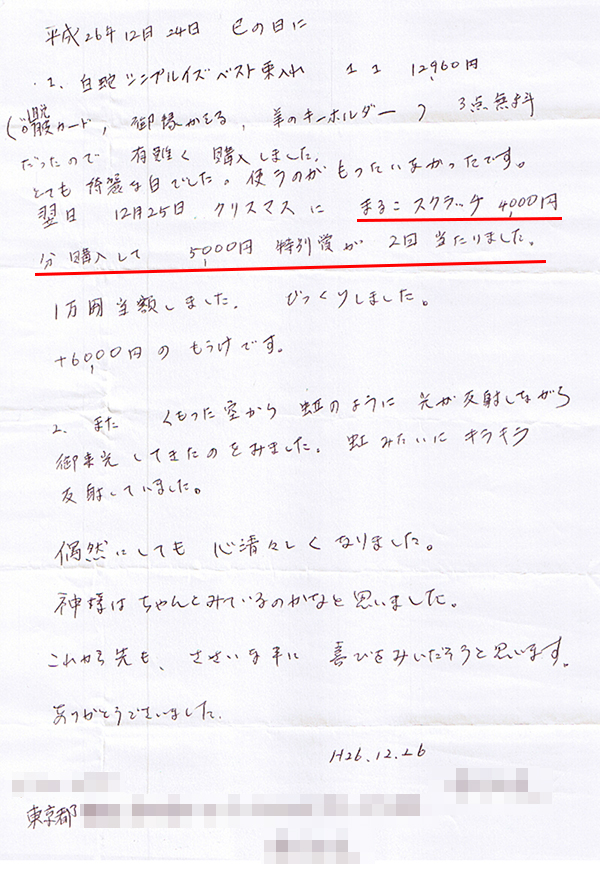 平成26年12月24日 巳の日に
1、白蛇シンプルイズベスト束入れ 11 12,960円
(脱皮カード、御縁かえる、羊のキーホルダー) 3点無料
だったので 有難く購入しました。
とても綺麗な白でした。使うのがもったいなかったです。
翌日 12月25日 クリスマスに まるこスクラッチ 4,000円
分購入して 5,000円特別賞が 2回当たりました。
1万円当額しました。 びっくりしました。
+6,000円のもうけです。
2、また くもった空から 虹のように 光が反射しながら
御来光してきたのをみました。虹みたいにキラキラ
反射していました。
偶然にしても 心清々しくなりました。
神様はちゃんとみているのかなと思いました。
これから先も、ささいな事に 喜びをみいだそうと思います。
ありがとうございました。
H26.12.26
東京都